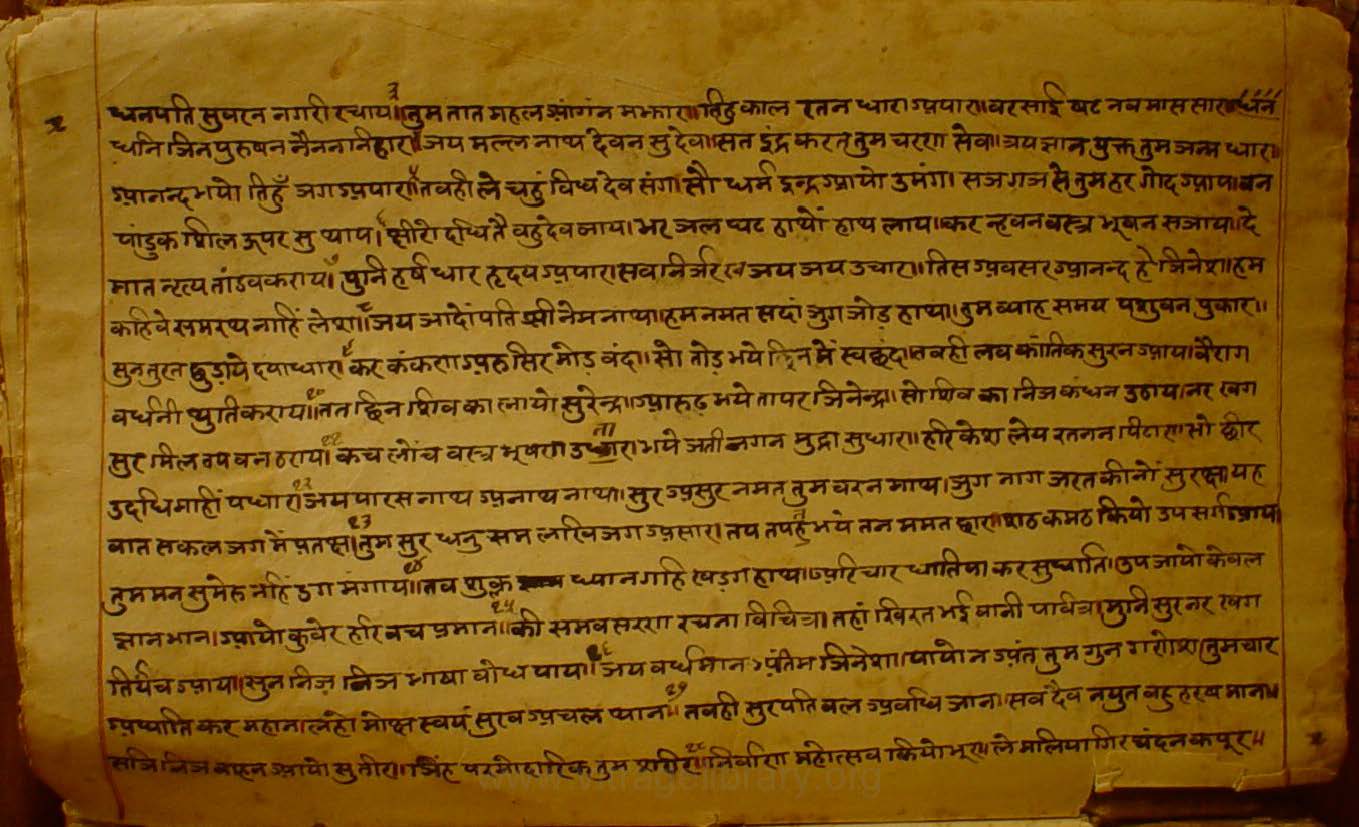 धनपति सुवरन नगरी रचाय।३।तुम तात महल आंगन मझार।तिहु काल रतन धारा अपार।वरसाई षट नव मास सार।धंनि
धनि जिन पुरुषन नैनन निहार।४।जय मल्ल नाथ देवन सुदेव।सत इंद्र करत तुम चरण सेव।त्रय ज्ञान युक्त तुम जन्म धार।
आनन्द भयो तिहुँ जग अपार।५।तवही ले चहुं विध देव संग।सौ धर्म इन्द्र आयो उमंग। सज गज ले तुम हर गोद आप।वन
पांडुक शिल ऊपर सु थाप।६।क्षीरोदधि तै वहु देव जाय।भर जल घट हाथों हाथ लाय।कर न्हवन वस्त्र भूषन सजाय।दे
मात नृत्य तांडव कराय।७।पुनि हर्ष धार हृदय अपार।सव निर्जर जय जय उचार।तिस अवसर आनन्द हे जिनेश।हम
कहिवे समरथ नाहिं लेश।८।जय जादोंपति श्री नेमनाथ।हम नमत सदां जुग जोड़ हाथ।तुम व्याह समय पशुवन पुकार।
सुन तुरत छुड़ाये दया धार।९।कर कंकण अरु सिर मोड़ वंद।सो तोड़ भये छिन में स्वछंद।तवही लव कांतिक सुरन आय।वैराग
वर्धनी थुति कराय।१०।तत छिन शिव का लायो सुरेन्द्र।आरूढ़ भये तापर जिनेन्द्र।सो शिव का निज कंधन उठाय।नर खग
सुर मिल वन ठराय।११।कच लोंच वस्त्र भूषण उतार।भये जती नगन मुद्रा सुधार।हरि केश लेय रतनन पिटार।सो छीर
उदधि माहीं पधार।१२।जय पारसनाथ अनाथ नाथ।सुर असुर नमत तुम चरन माथ।जुग नाग जरत कीनों सुरक्ष।यह
वात सकल जग में प्रतक्ष।१३।तुम सुर धनु सम लखि जग असार।तप तपत भये तन ममत छार।शठ कमठ कियो उपसर्ग आय।
तुम मन सुमेरु नहिं डगमगाय।१४।तव शुक्ल ध्यान गहि खड़ग हाथ।अरि चार घातिया कर सुघाति।उपजायो केवल
ज्ञान भान।आयो कुवेर हरि वच प्रमान।१५।की समवसरण रचना विचित्र।तहां खिरत भई वानी पवित्र।मुनि सुर नर खग
तिर्यंच आय।सुन निज निज भाषा वोध पाय।१६।जय वर्धमान अंतिम जिनेश।पायो न अंत तुम गुन गणेश।तुम चार
अघाति कर महान।लहो मोक्ष स्वयं सुख अचल थान।१७।तवही सुरपति वल अवधि जान।सव देव नयुत वहु हरष मान।
सजि निज वाहन आयो सुतीर।जिंह परमोदारिक तुम शरीर।१८।निर्वाण महोत्सव कियो भूर।ले मलियागिर चंदन कपूर।
www.vitragelibrary.org